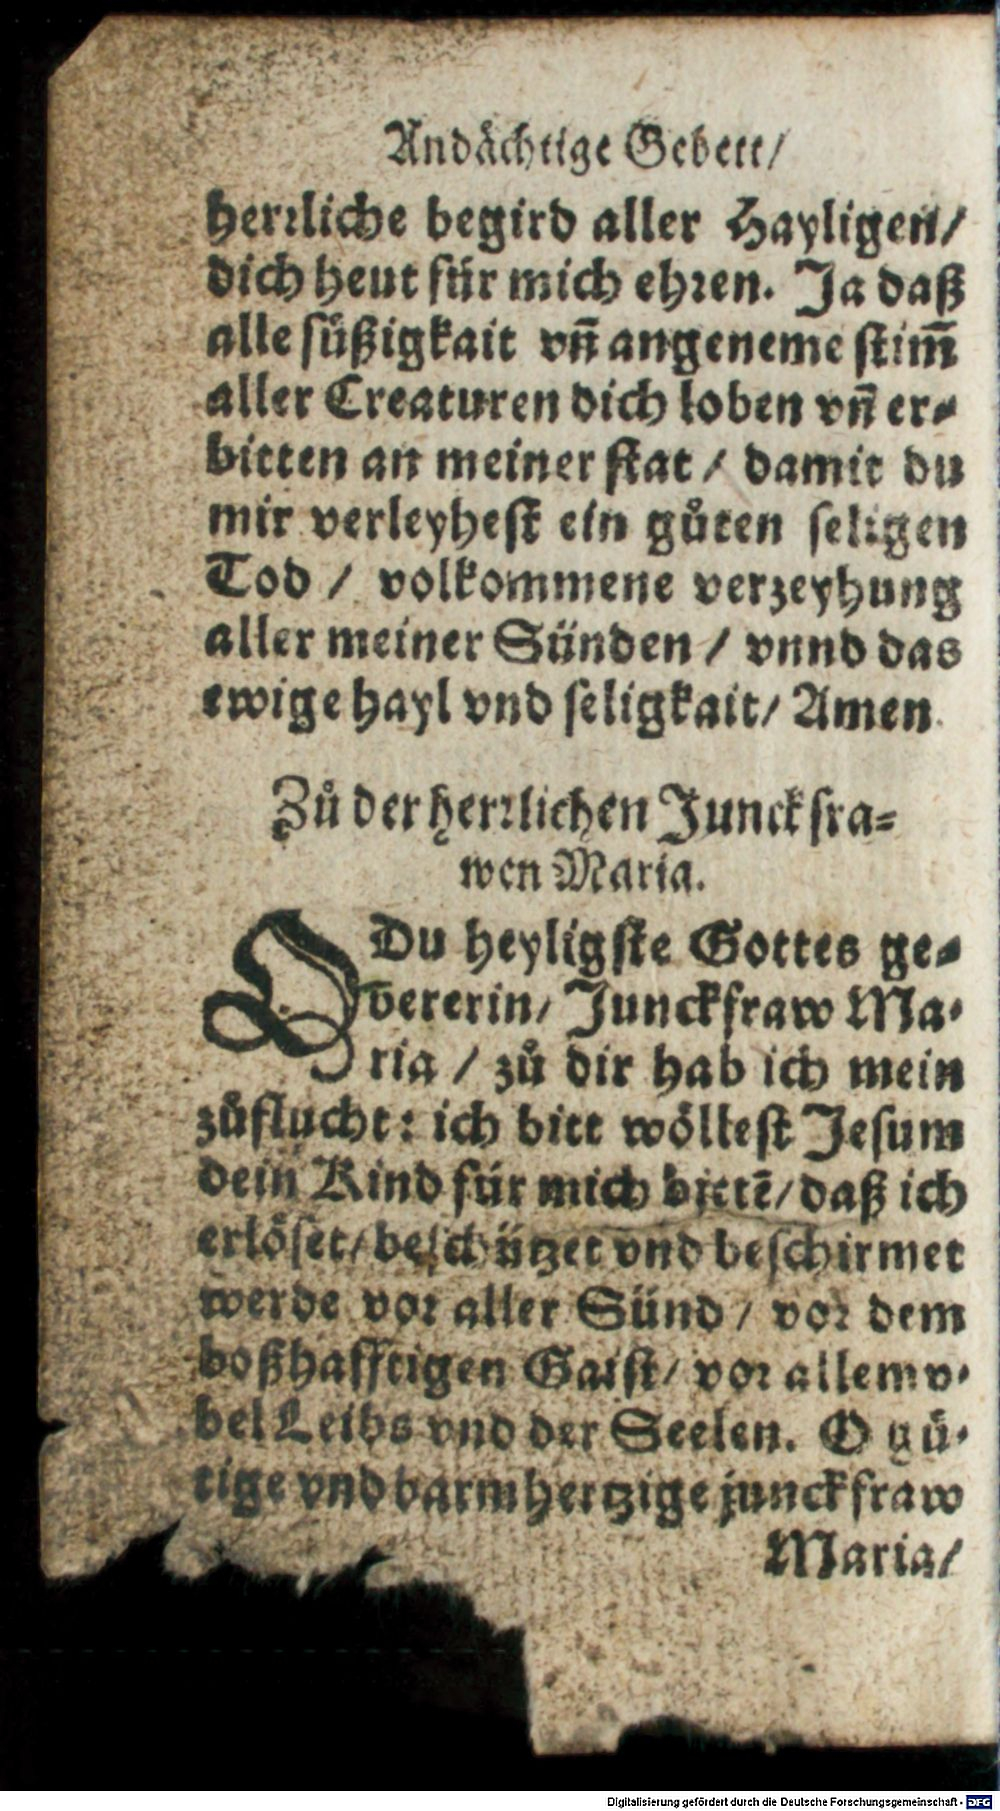 Andächtige Gebett/
herꝛliche begird aller Hayligen/
dich heut für mich ehꝛen. Ja daß
alle süßigkait vn̄ angeneme stim̄
aller Creaturen dich loben vn̄ er⸗
bitten an meiner stat / damit du
mir verleyhest ein gůten seligen
Tod / volkommene verzeyhung
aller meiner Sünden / vnnd das
ewige hayl vnd seligkait/ Amen.
Zů der herꝛlichen Junckfra⸗
wen Maria.
O Du heyligste Gottes ge⸗
bererin/ Junckfraw Ma⸗
ria / zů dir hab ich mein
zůflucht: ich bitt wöllest Jesum
dein Kind für mich bittē/ daß ich
erlöset/ beschützet vnd beschirmet
werde voꝛ aller Sünd / voꝛ dem
boßhafftigen Gaist/ voꝛ allem v⸗
bel Leibs vnd der Seelen. O gü⸗
tige vnd barmhertzige junckfraw
Maria/
Digitalisierung gefördert durch die Deutsche Forschungsgemeinschaft - DFG